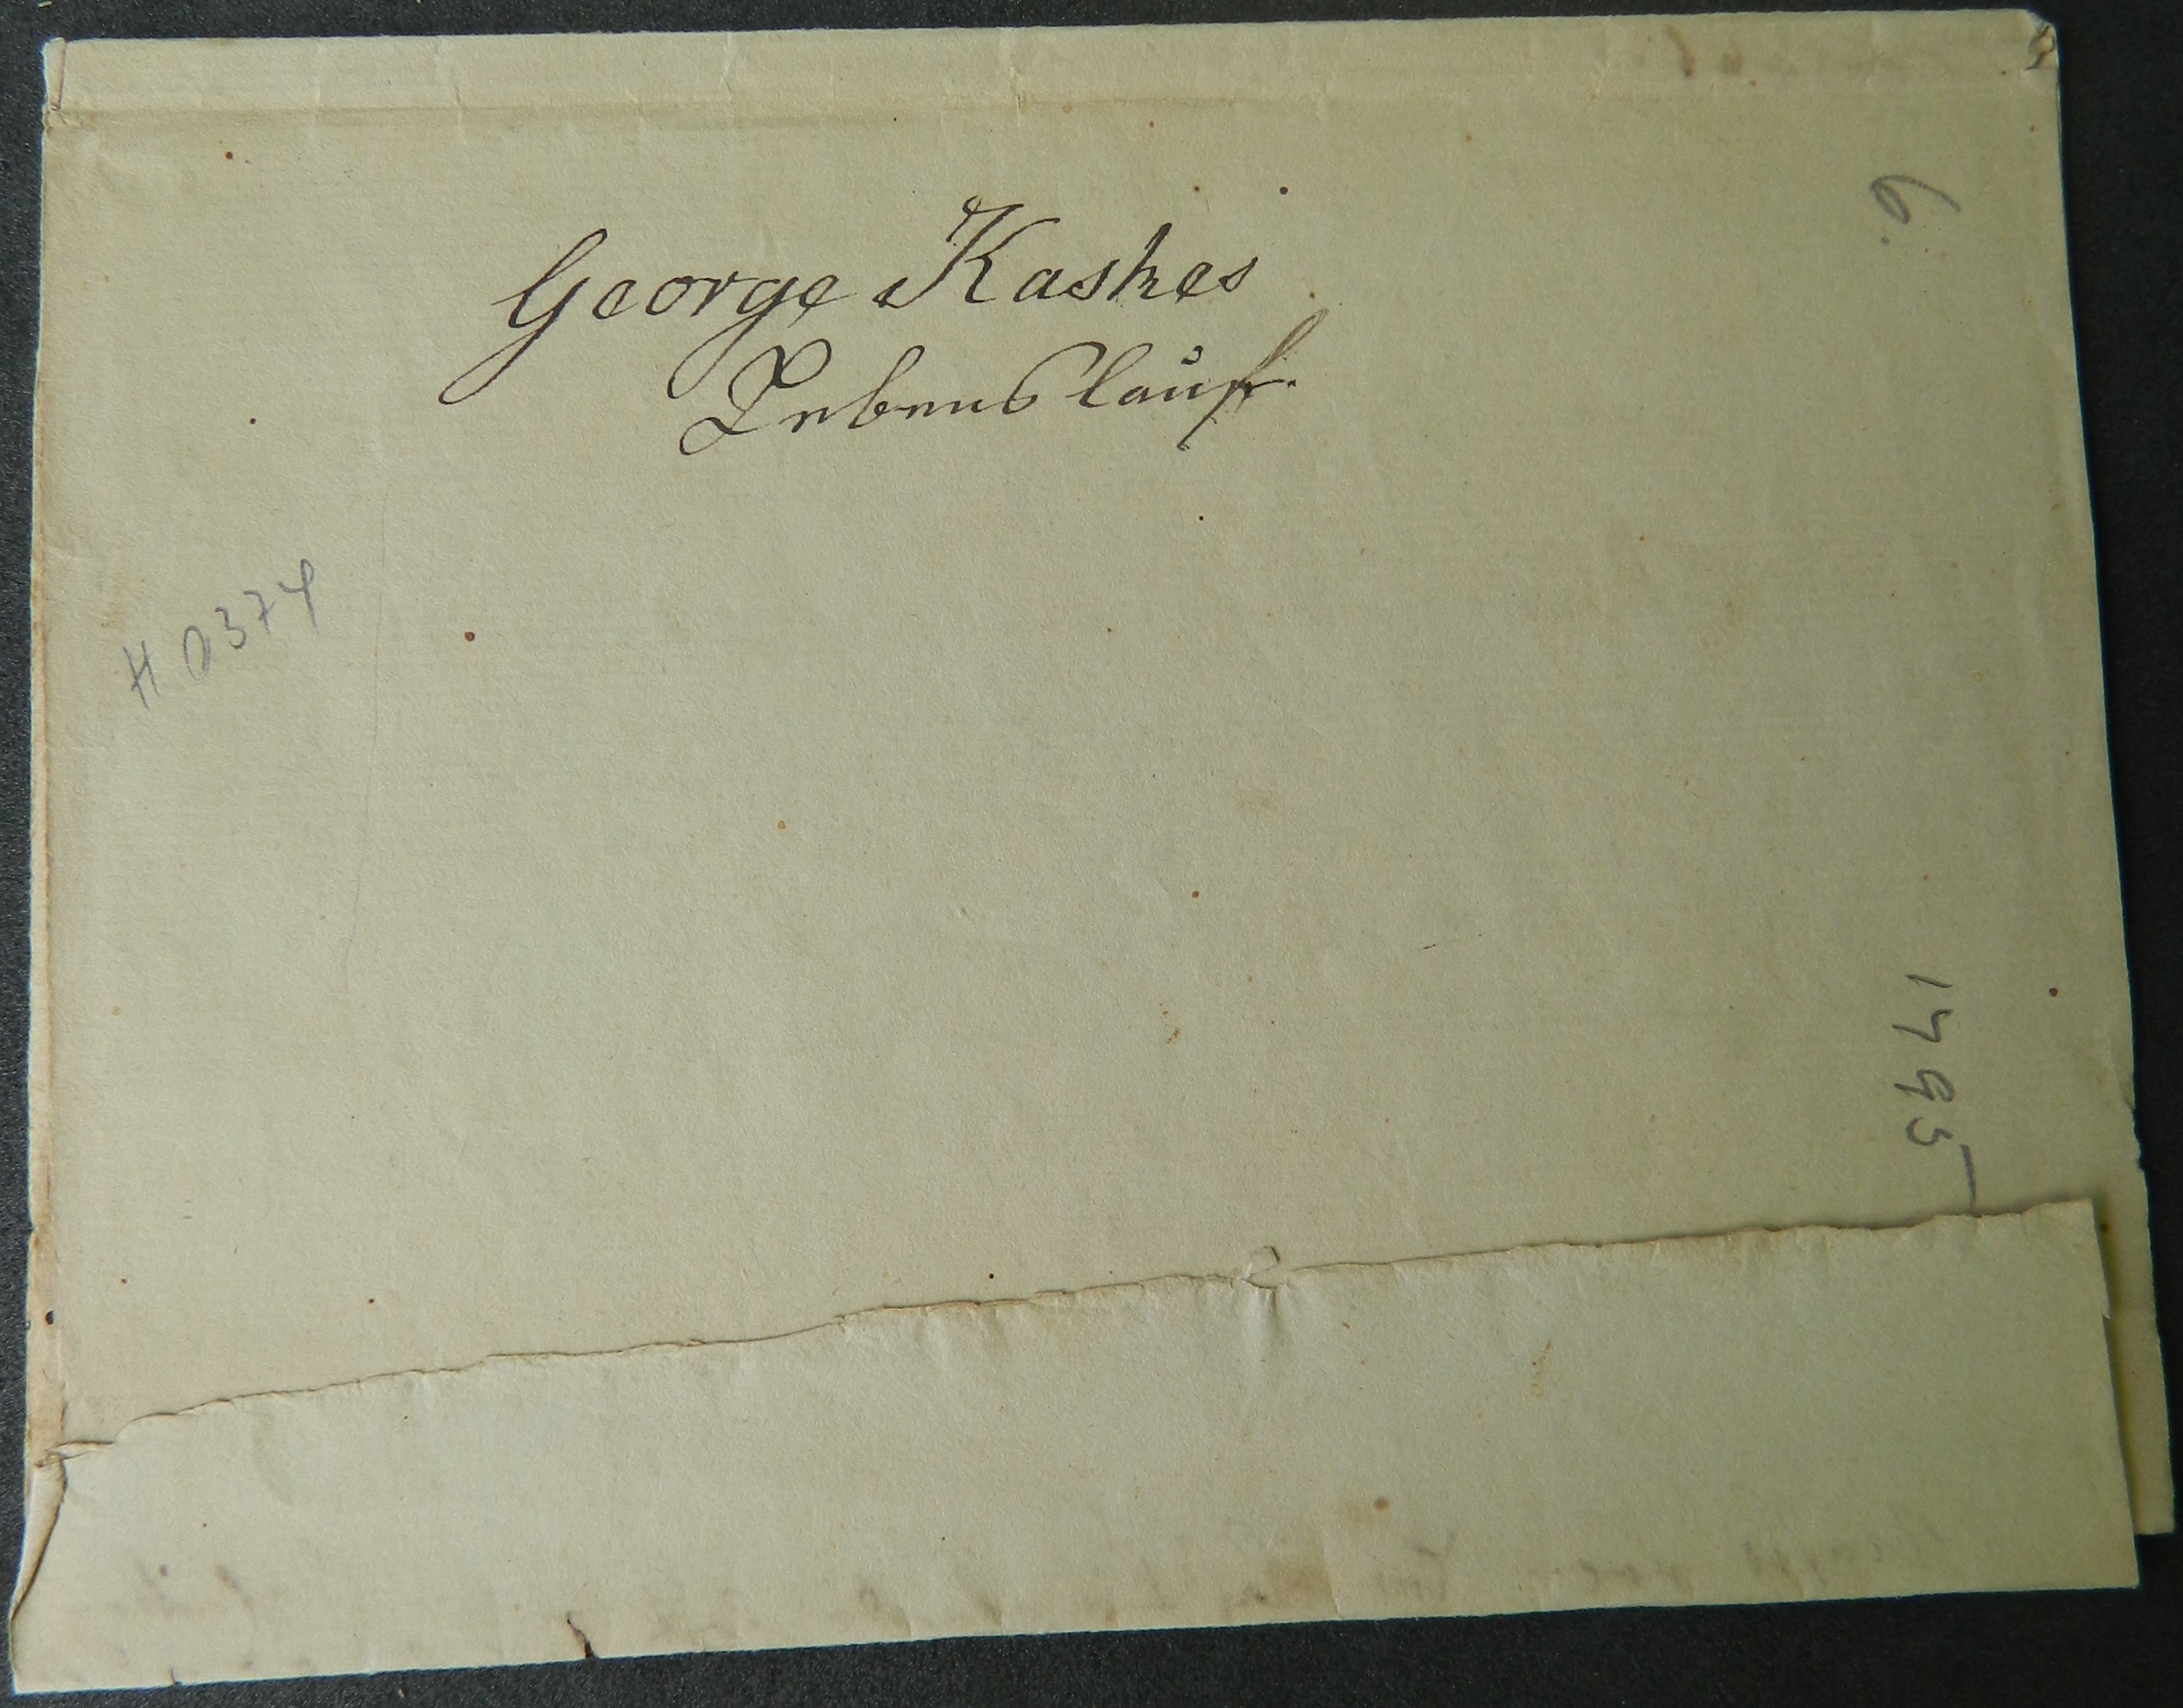 George Kaskes
Lebenslauf.
H 0374
6.
1795